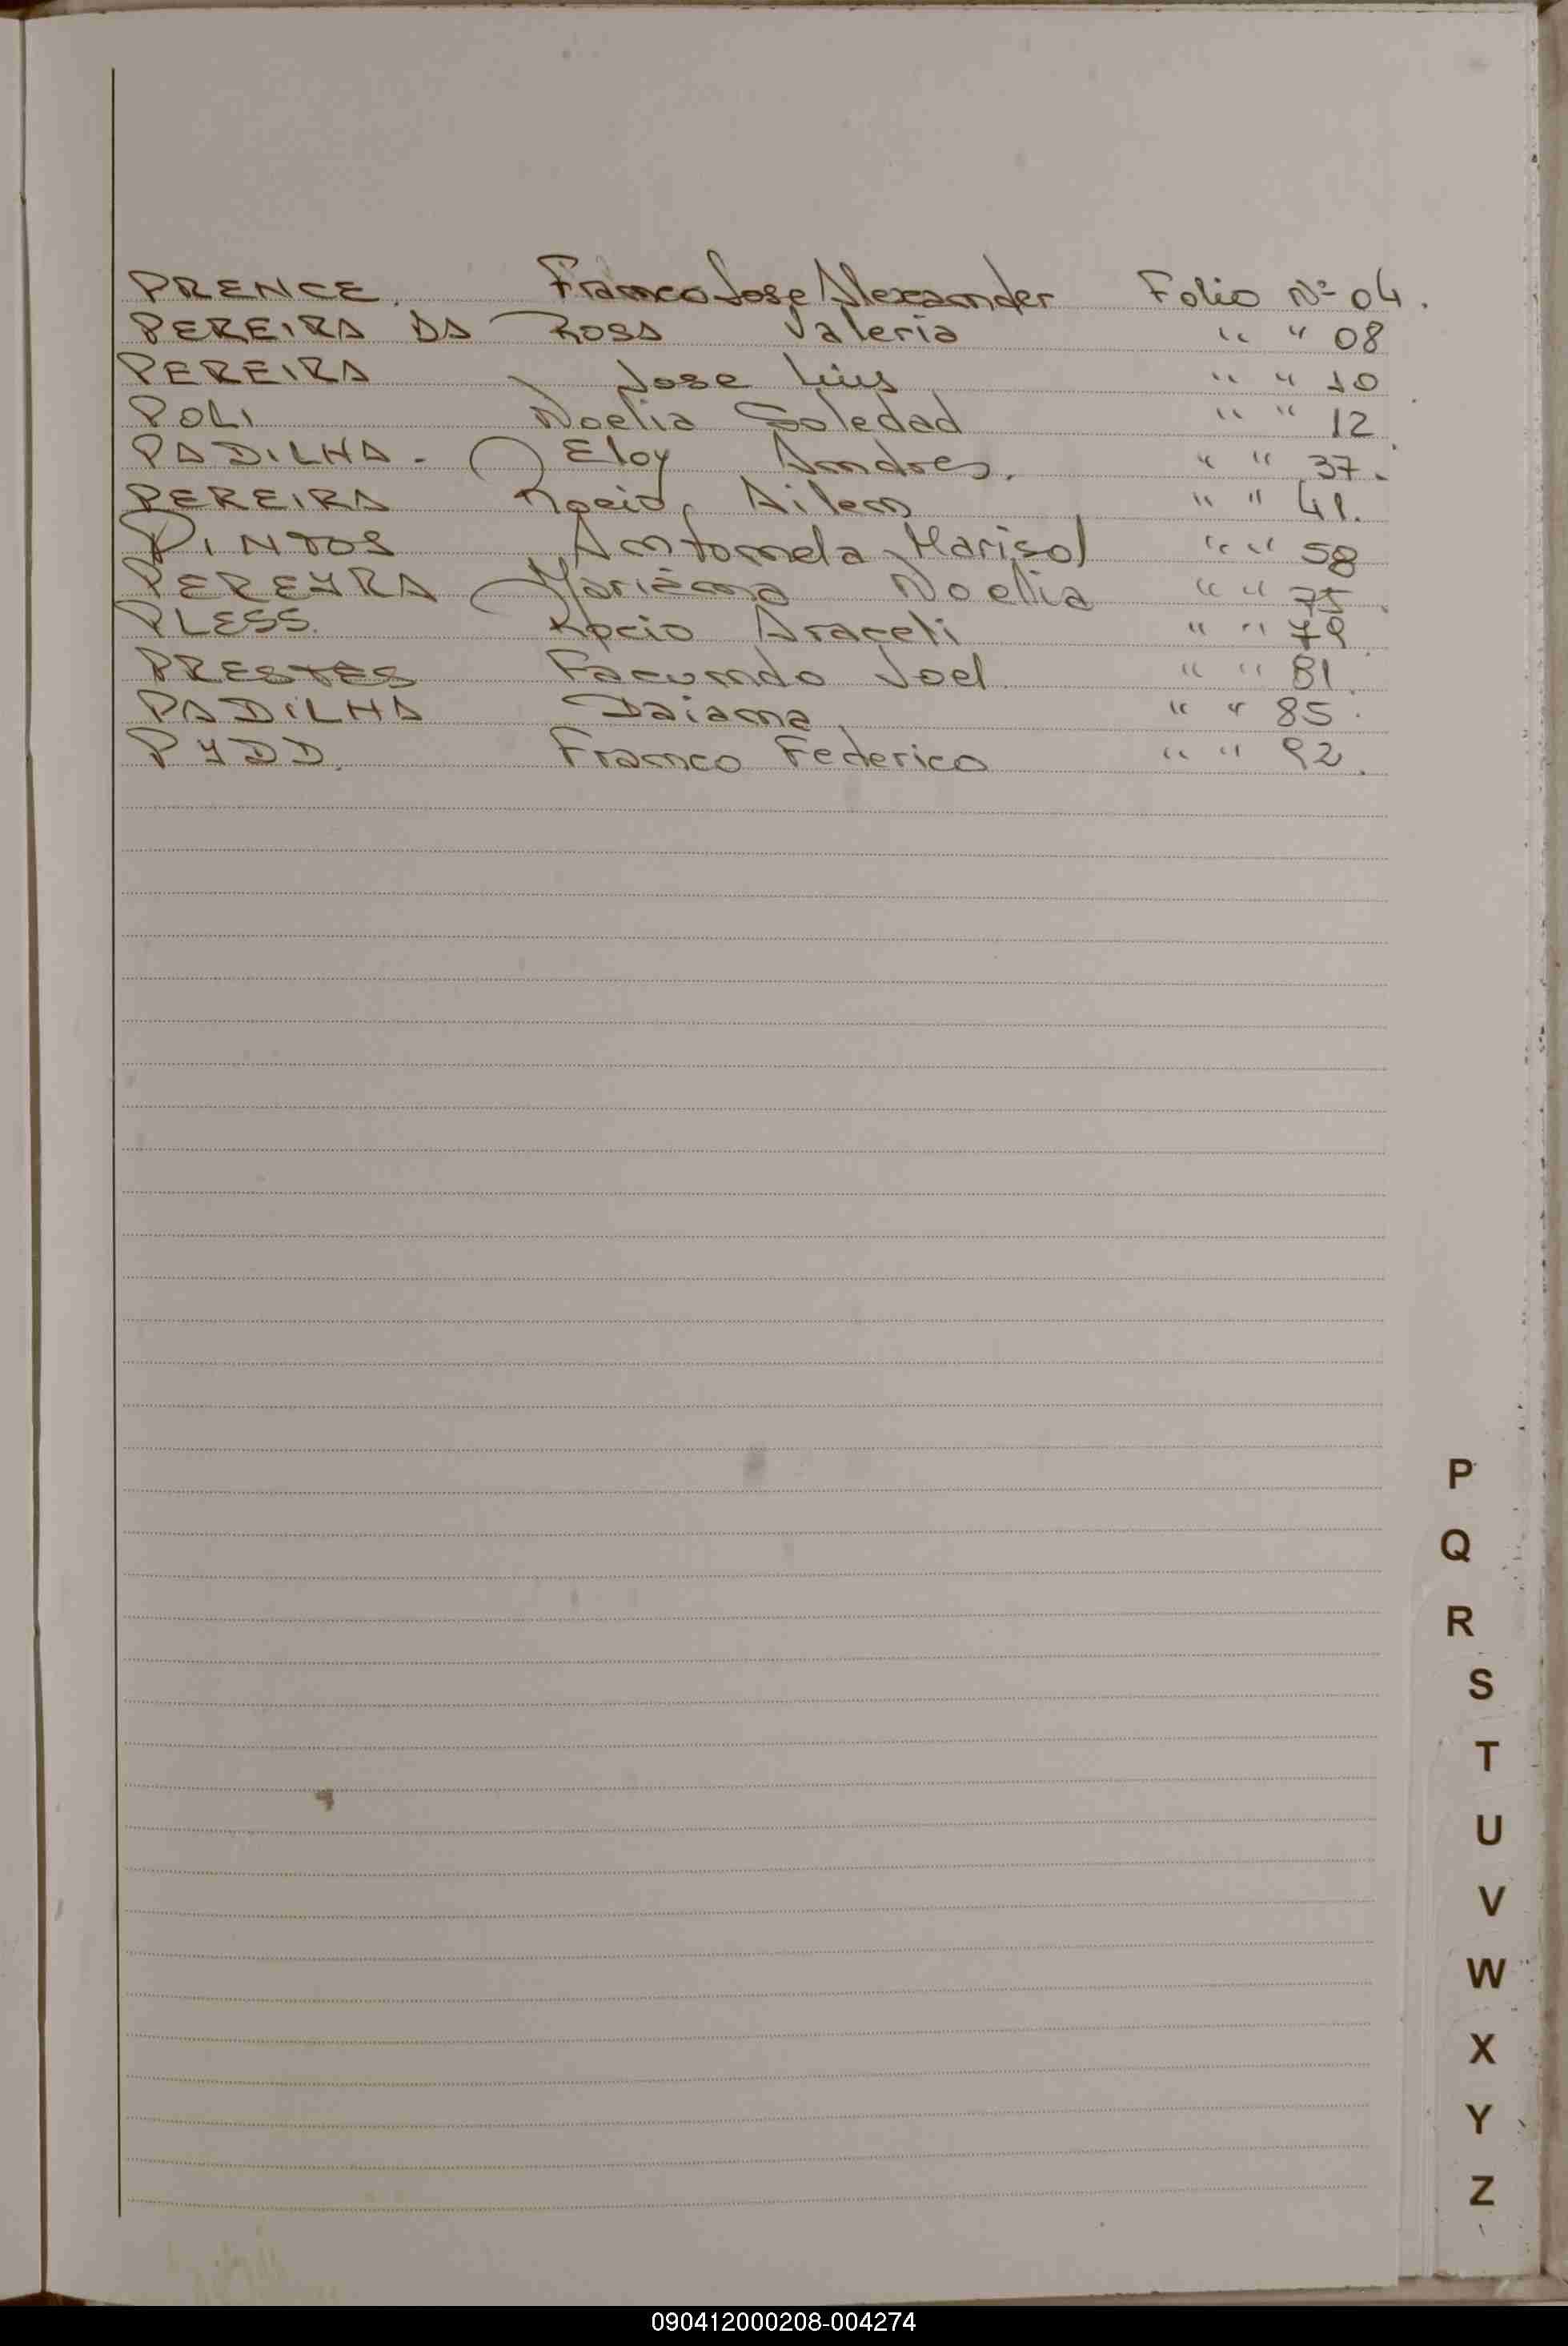 PRENCE. Franco Jose Alexander Folio Nº 04.
PEREIRA DA ROSA Valeria " " 08
PEREIRA Jose Luis " " 10
POLI Noelia Soledad " " 12
PADILHA - Eloy Andres. " " 37.
PEREIRA Rocio Ailen " " 41.
PINTOS Antonela Marisol " " 58
PEREYRA Mariana Noelia " " 75.
PLESS. Rocio Araceli " " 79
PRESTES Facundo Joel " " 81.
PADILHA Daiana. " " 85.
PYDD. Franco Federico " " 92.
P
Q
R
S
T
U
V
W
X
Y
Z
090412000208-004274